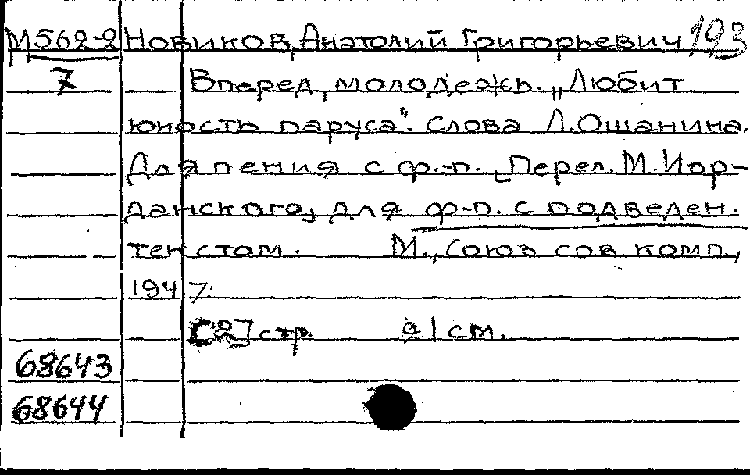 М562-2 Новиков, Анатолий Григорьевич 193
7 Вперед, молодежь. „Любит
юность паруса". Слова Л. Ошанина.
Для пения с ф.-п. Перел. М. Иор-
данского, для ф-п. с подведен.
текстом. М., союз сов комп.,
1947.
[2] стр. 21 см.
68643
68644